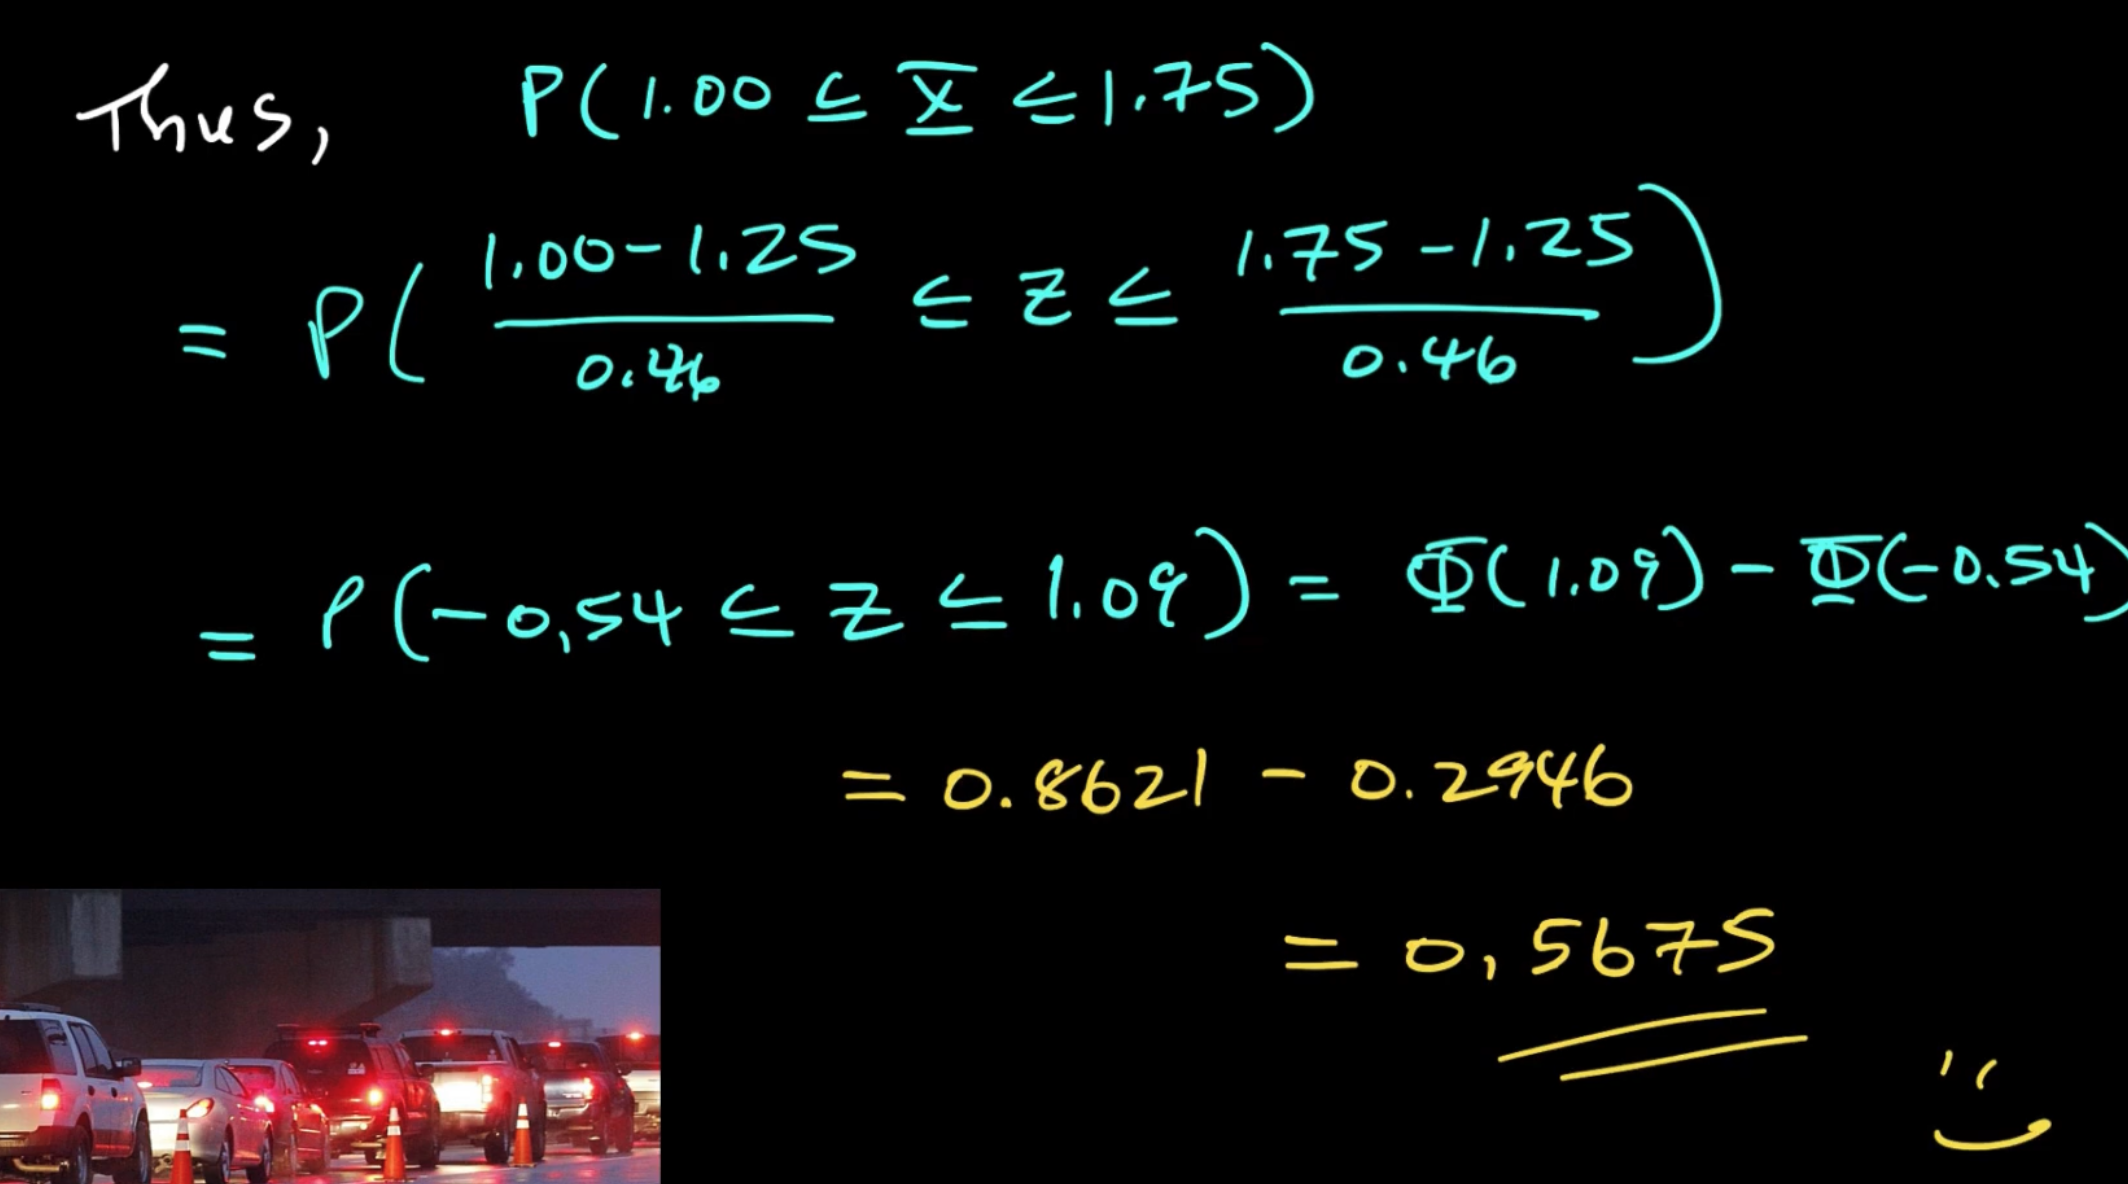 Thus, P(1.00 ≤ X̄ ≤ 1.75)
= P( (1.00-1.25)/0.46 ≤ Z ≤ (1.75-1.25)/0.46 )
= P(-0.54 ≤ Z ≤ 1.09) = Φ(1.09) - Φ(-0.54)
= 0.8621 - 0.2946
= 0.5675